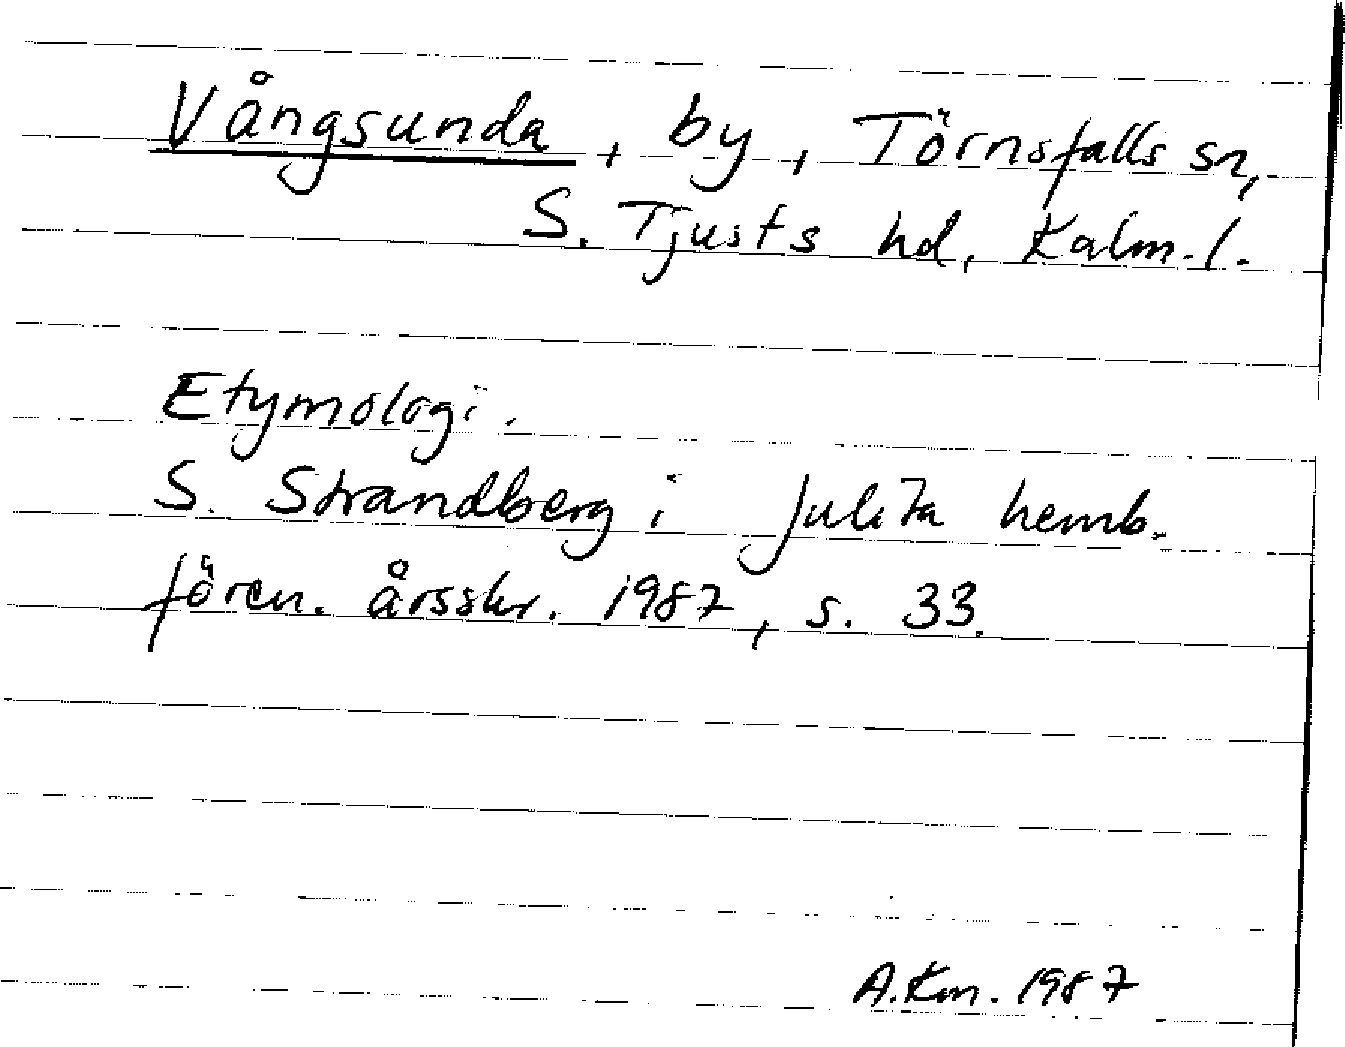 Vångsunda, by, Törnsfalls sn,
S. Tjusts hd, Kalm. l.
Etymologi.
S. Strandberg i Julita hemb.
fören. årsskr. 1987, s. 33.
A.Km. 1987